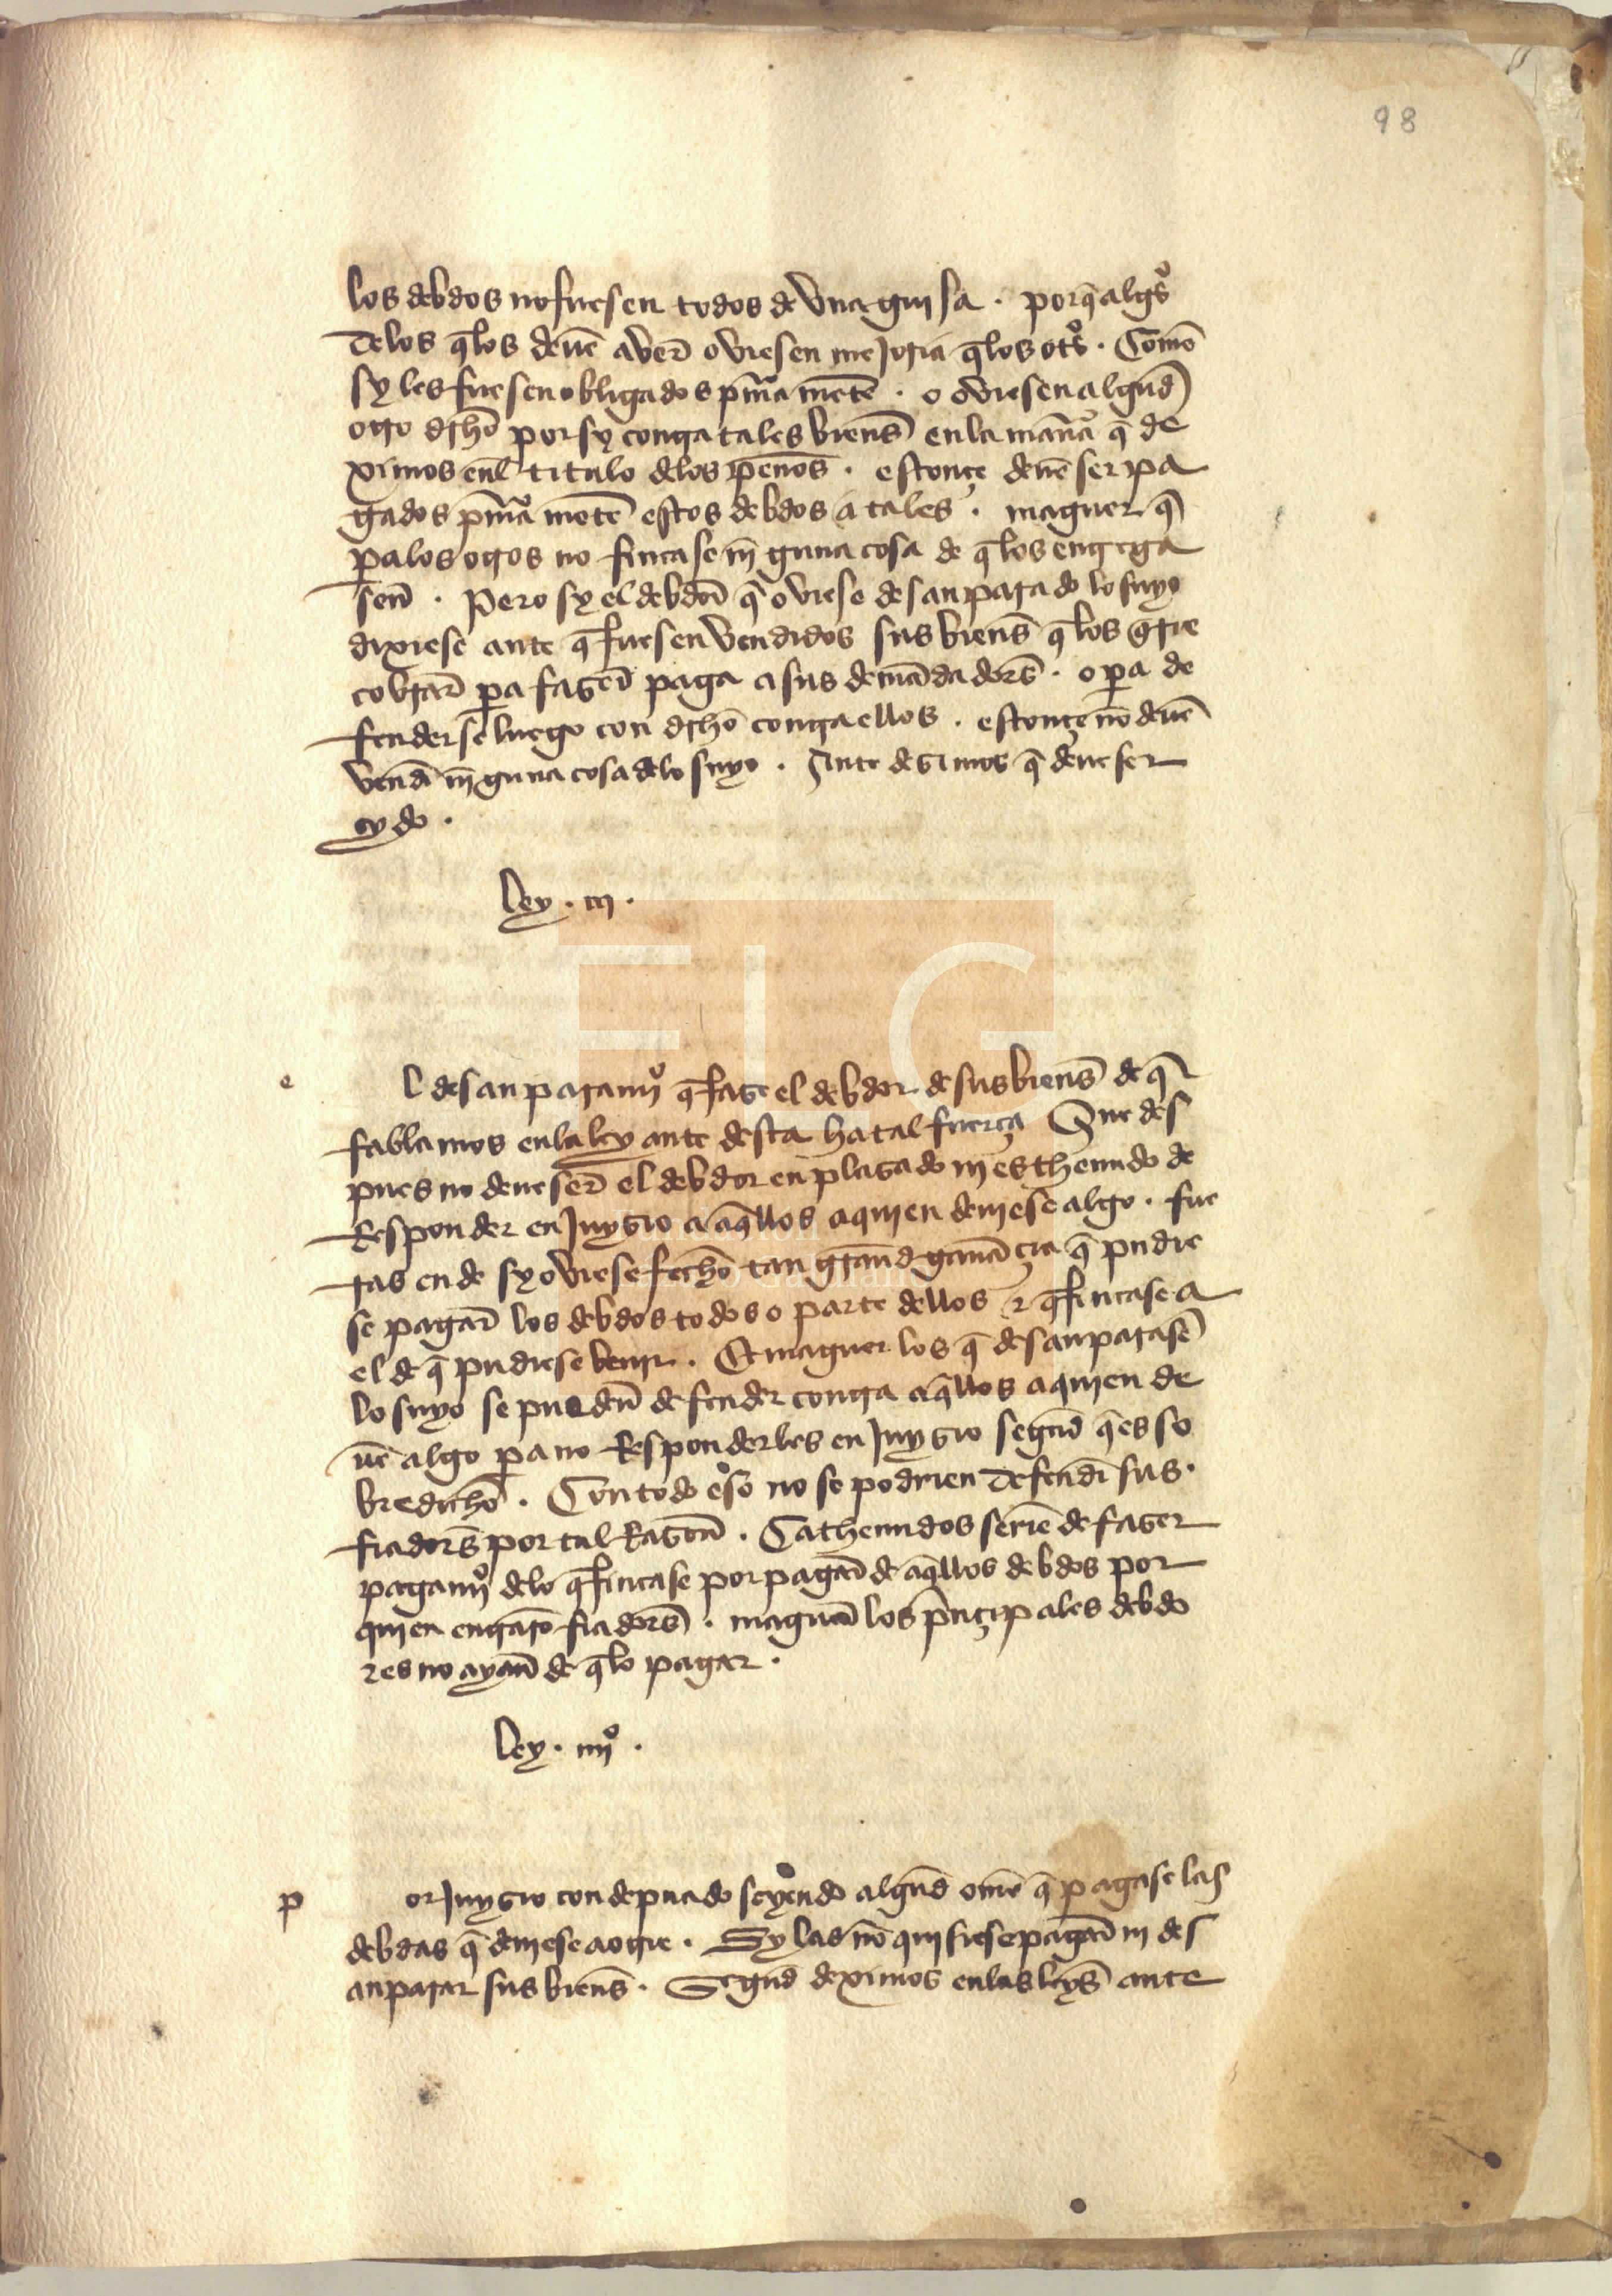 98
los debdos no fuesen todos de vna guisa . porq̃ algs̃o
delos q̃ los deuẽ aver̃ oviesen mejoria q̃ los otõs . Comõ
sy les fuesen obligados pm̃a mẽte . o oviesen algud̃
otro dr̃cho por sy contra tales bienes̃ en la man̄a q̃ de
ximos enl̃ titulo delos penos̃ . estonçe deuẽ ser pa
gados pm̃a mẽte estos debdos a tales . maguer q̃
pa los otros no fincase nĩguna cosa de q̃ los entrega
sen̄ . Pero sy el debdor̃ q̃ oviese desanparado lo suyo
dixiese ante q̃ fuesen vendidos sus bienes̃ q̃ los q̃rie
cobrar̃ pa fazer̃ paga a sus demãdadores̃ . o pa de
fenderse luego con dr̃cho contra ellos . estonçe nõ deuẽ
vendr̃ nĩguna cosa delo suyo . Ante dezimos q̃ deue ser
oydo .
ley . iij .
e
l desanparamiº q̃ faze el debdor de sus bienes̃ de q̃
fablamos en la ley ante desta ha tal fuerça Que des
pues no deue ser̃ el debdor enplazado nj es thenudo de
Responder en Juyzio a aq̃llos a quien deuiese algo . fue
ras ende sy oviese fechõ tan grãnd ganãçia q̃ pudie
se pagar̃ los debdos todos o parte dellos z q̃ fincase a
el de q̃ pudiese beujr . Et maguer los q̃ desanparasẽ
lo suyo se pueden̄ defender contra aq̃llos a quien de
uẽ algo pa no Responderles en Juyzio segud̃ q̃ es so
bredichõ . Con todo eso no se podrien defendr̃ sus
fiadores̃ por tal Razon̄ . Ca thenudos seriẽ de fazer
pagamiº delo q̃ fincase por pagar̃ de aq̃llos debdos por
quien entrarõ fiadores̃ . maguer̃ los pr̃nçipales debdo
res no ayan̄ de q̃ lo pagar .
ley . iiijº .
p
or Juyzio condepnado seyendo algud̃ omẽ q̃ pagase las
debdas q̃ deuiese a otrie . Sy las nõ quisiese pagar̃ nj des
anparar sus bienes̃ . Segud̃ deximos en las leyes̃ ante